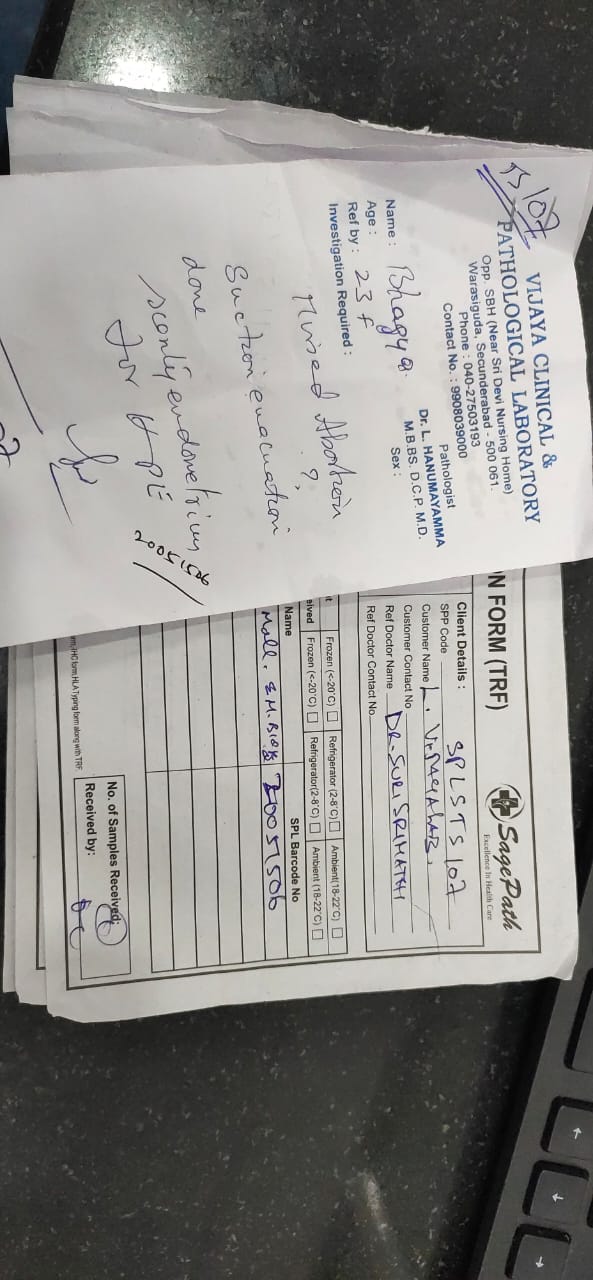 TS/07
VIJAYA CLINICAL &
PATHOLOGICAL LABORATORY
Opp. SBH (Near Sri Devi Nursing Home)
Warasiguda, Secunderabad - 500 061.
Phone : 040-27503193
Contact No. : 9908039000
Pathologist
Dr. L. HANUMAYAMMA
M.B.BS. D.C.P. M.D.
Name : Bhagya
Sex :
Age :
Ref by : 23 F
Investigation Required :
Missed Abortion
?
Suction evacuation
done
scanty endometrium
for HPE
20051506
N FORM (TRF)
SagePath
Excellence In Health Care
Client Details :
SPP Code SPLSTS107
Customer Name L.
Customer Contact No
Ref Doctor Name DR.
Ref Doctor Contact No
Frozen (<-20°C) Refrigerator (2-8°C) Ambient(18-22°C)
eived Frozen (<-20°C) Refrigerator(2-8°C) Ambient (18-22°C)
Name SPL Barcode No
20051506
rm,IHC form,HLA Typing form along with TRF.
No. of Samples Received:
Received by: